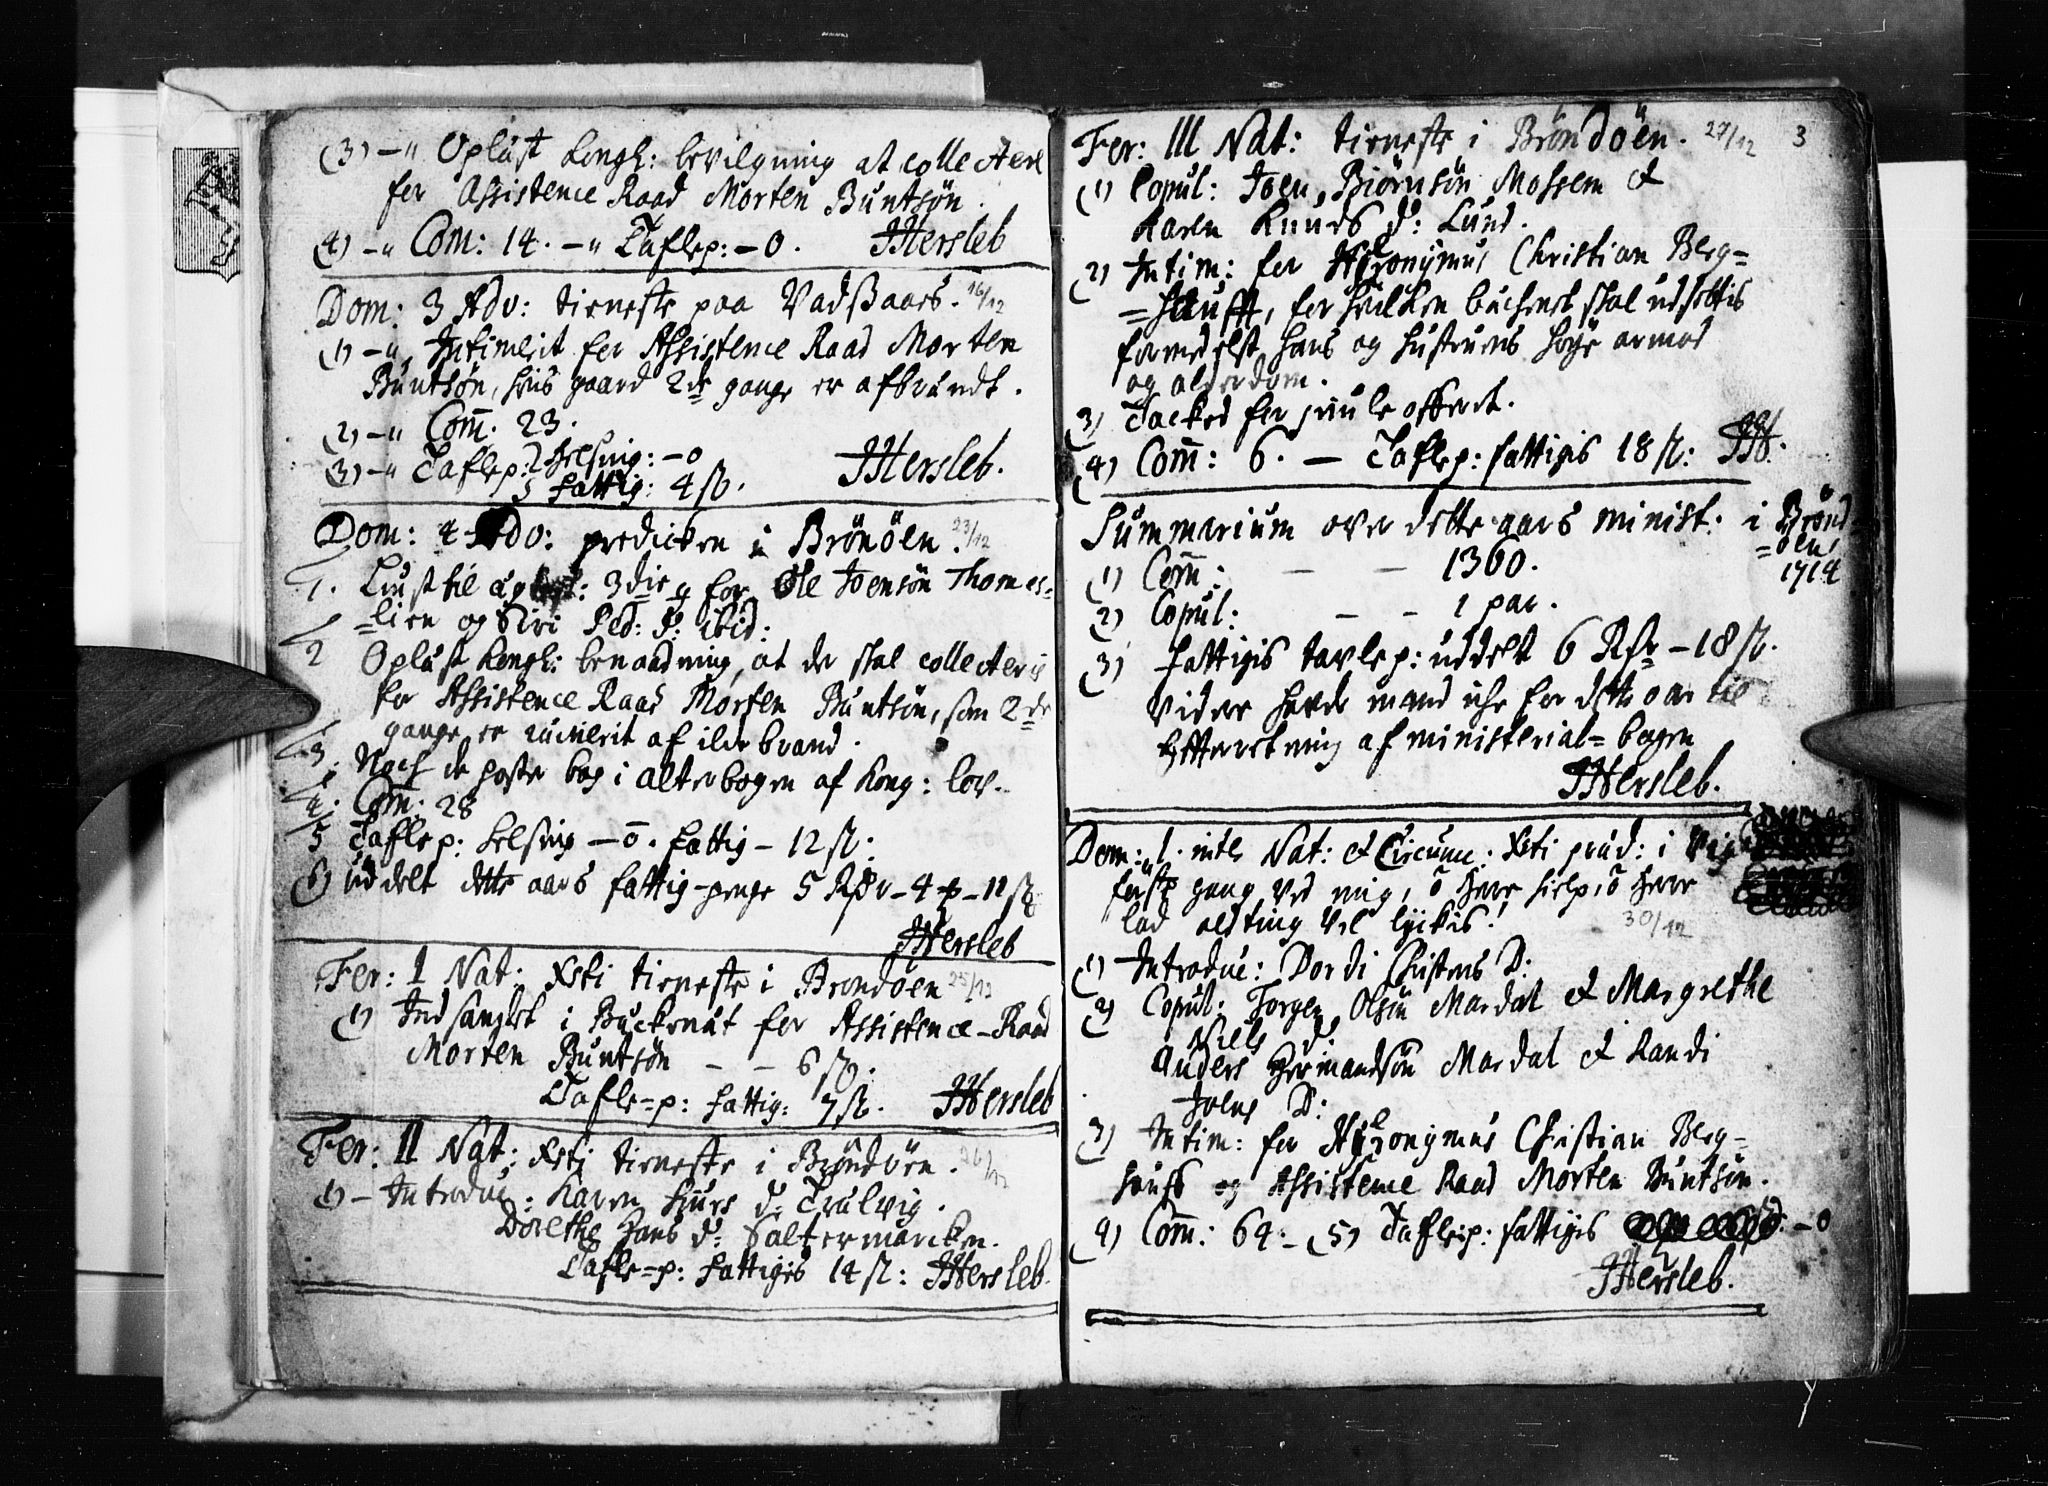 (3) -" Oplüst kongl: bevilgning at collectere
for Assistence Raad Morten Buntsøn.
(4) -" Com: 14. -" Taflep: - 0. JHersleb
Dom: 3 Adv: tieneste paa Vadßaas. 16/12
(1) -" Intimerit for Assistence Raad Morten
Buntsøn, hvis gaard 2de gange er afbrændt.
(2) -" Com̄. 23.
(3) -" Taflep: helsing: - 0
fattig: 4 ß. JHersleb.
Dom: 4 Adv: predicken i Brönöen. 23/12
1. Liust til 3die g for Ole Joensön Thomes=
=lien og Siri Ped: d: ibid:
2 Oplüst kongl: benaadning, at der skal collecteris
for Assistence Raad Morten Buntsön, som 2de
gange er ruinerit af ildebrand.
3. Noch de poster bag i alterbogen af kong: lov.
4. Com̄. 28
5 Taflep: helsing - 0. fattig - 12 ß.
(6) üddelt dette aars fattig-penge 5 Rdr - 4 - 11 ß
JHersleb
Fer: I Nat: Xsti tieneste i Brøndöen 25/12
(1) Indsamlet i Buckenüt for Assistence-Raad
Morten Buntsön - - 6 ß.
Tafle=p: fattig: 7 ß. JHersleb
Fer: II Nat: Xsti tieneste i Bröndöen. 26/12
(1) - Introduc: Karen d: Trælvig.
Dorethe Hans d: Saltermarcken.
Tafle=p: fattigis 14 ß: JHersleb.
Fer: III Nat: tieneste i Bröndöen. 27/12 3
(1) Copul: Joen Biørnsön Mossem &
Karen Knuds d: Lund.
2) Intim: for Hieronÿmus Christian Berg=
=hauff, for hvilken buchenet skal udsettis
formedelst hans og hustruens høye armod
og alderdom.
3) Tacked for juule offeret.
(4) Com̄: 6. - Taflep: fattigis 18 ß: JH.
Summarium over dette aars minist: i Brönd
=öen, 1714
(1) Com̄: - - 1360.
2) Copul: - - 1 par.
(3) Fattigis tavlep: uddelt 6 Rdr - 18 ß.
Videre havde mand iche for dette aar til
Efterretning af ministerial=bogen
JHersleb.
Dom: 1. inter Nat: & Circumc: Xsti præd: i
første gang ved mig, ö Herre hielp, ö Herre
lad alting vel lÿckis! 30/12
(1) Introduc: Dordi Christens D:
2) Copul: Jorgen Olsün Mardal & Margrethe
Niels d:
Anders Hermandsön Mardal & Randi
Joens D:
3) Intim: for Hieronymus Christian Berg-
hauff og Assistence Raad Morten Buntsön.
4) Com̄: 64. - (5) Taflep: fattigis - 0
JHersleb.